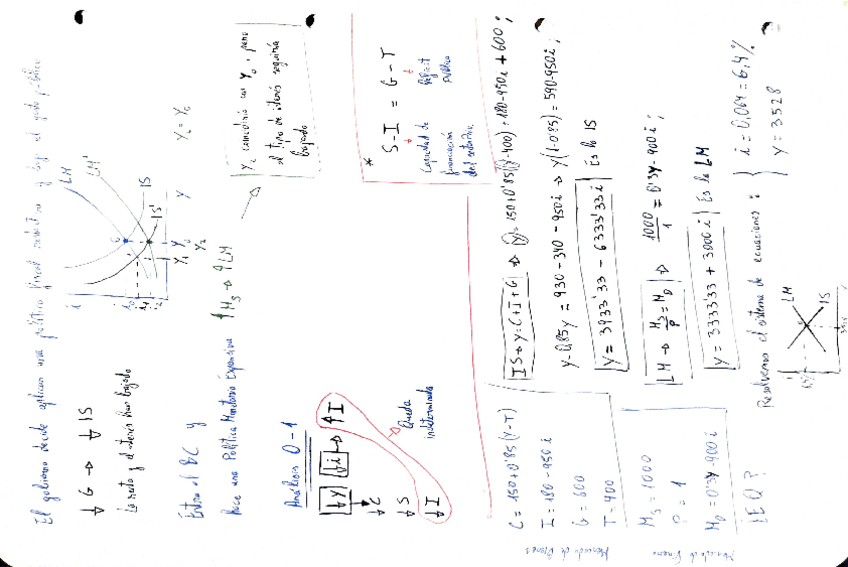 El gobierno decide aplicar una política fiscal restrictiva y baja el gasto público
↓G → ↓IS
La renta y el interés han bajado
i
LM
LM'
IS
IS'
Y₁ Y₀
Y₂
Y
Y₂ = Y₀
Entra el BC y
hace una Política Monetaria Expansiva ↑Ms → ↑LM
Y₂ coincidiría con Y₀, pero
el tipo de interés seguiría
bajando
Análisis 0-1
↓Y ↓i → ↑I
↓C
↓S
↓I
Queda
indeterminada
*
S-I = G-T
Capacidad de
financiación
del
Déficit
público
Mercado de Bienes
C = 150+0'85(Y-T)
I = 180-950i
G = 600
T = 400
IS → Y=C+I+G → Y=150+0'85(Y-400)+180-950i+600;
Y-0,85Y = 930-340-950i → Y(1-0'85)=590-950i;
Y = 3933'33 - 6333'33i Es la IS
Mercado de Dinero
Ms = 1000
P = 1
MD = 0'3Y-900i
LM → Ms/P = MD → 1000/1 = 0'3Y-900i;
Y = 3333'33 + 3000i Es la LM
¿EQ?
Resolvemos el sistema de ecuaciones:
i = 0,064 = 6,4%
Y = 3528
LM
IS